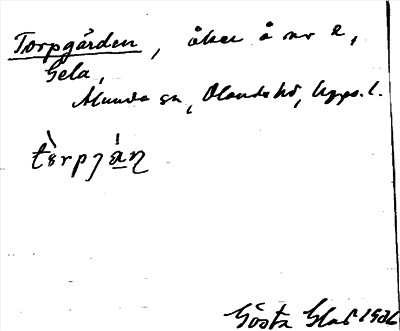 Torpgården, åker å nr 2,
Gela,
Alunda sn, Olands hd, Upps. l.
Gösta Glas 1936